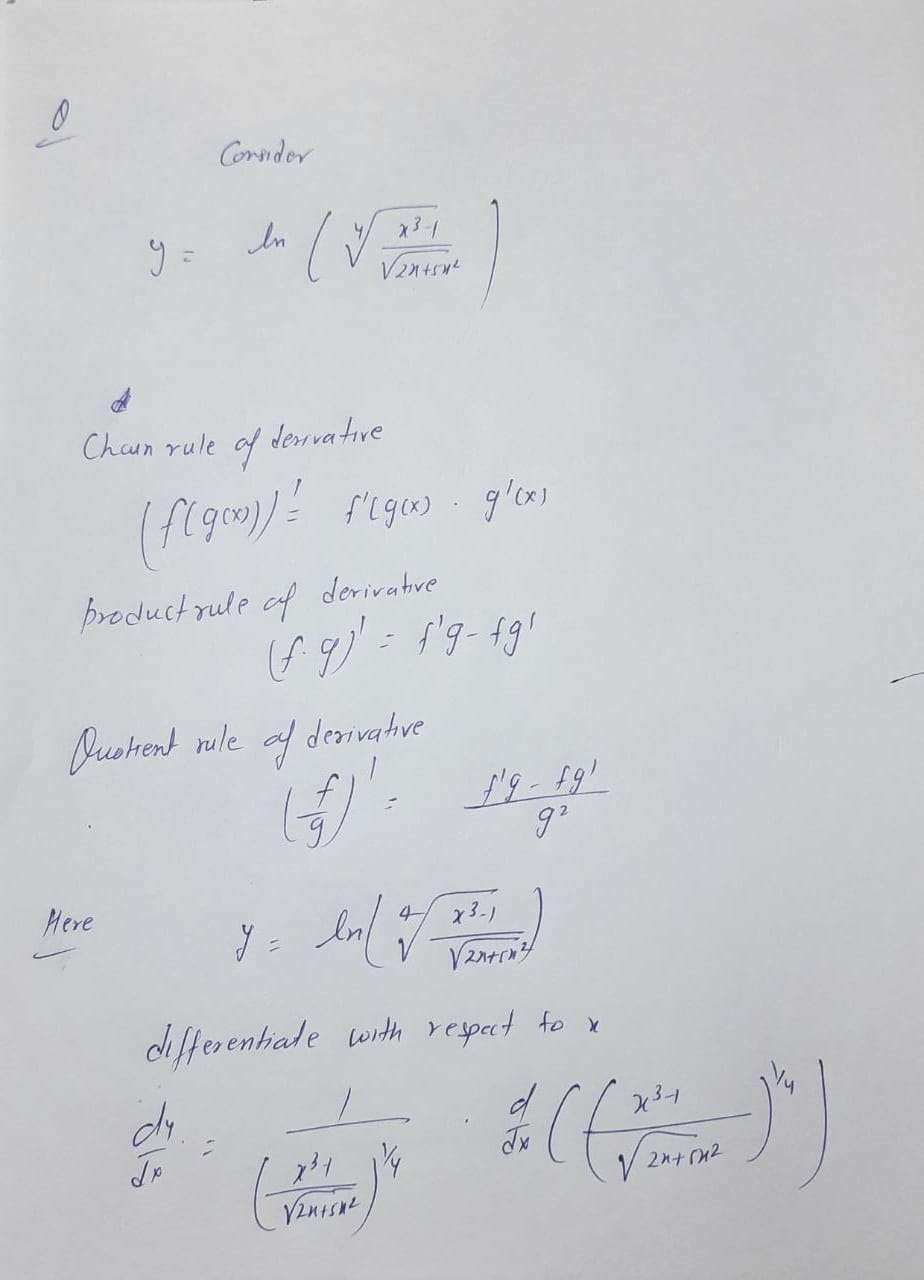 Q
Consider
y = ln ( ∜( (x³-1) / √(2x+5x²) ) )
Chain rule of derivative
(f(g(x)))' = f'(g(x) . g'(x)
product rule of derivative
(f.g)' = f'g - fg'
Quotient rule of derivative
(f/g)' = (f'g - fg') / g²
Here
y = ln( ∜( (x³-1) / √(2x+5x²) ) )
differentiate with respect to x
dy/dx = 1 / ( (x³-1) / √(2x+5x²) )^(1/4) . d/dx ( ( (x³-1) / √(2x+5x²) )^(1/4) )